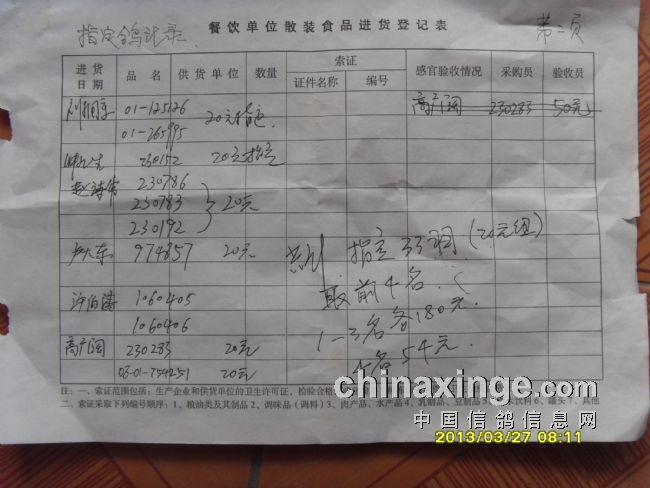 指定鸽记录
餐饮单位散装食品进货登记表
第二页
进货日期 品名 供货单位 数量 索证 感官验收情况 采购员 验收员
证件名称 编号
01-125126 20元指定
01-265995
高广阔 230283 50元
230152 20元指定
230786
230783 20元
230192
卢大东 974857 20元
共计 指定33羽(20元组)
取前4名
许伯涛 1060405
1060406
1-3名各180元
4名54元
高广阔 230283 20元
03-01-754251 20元
注:一、索证范围包括:生产企业和供货单位的卫生许可证,检验合格
二、索证采取下列编号顺序:1、粮油类及其制品2、调味品(调料)3、肉产品、水产品4、乳制品、豆制品5、
饮料6、罐头7、其他
chinaxinge.com
中国信鸽信息网
2013/03/27 08:11